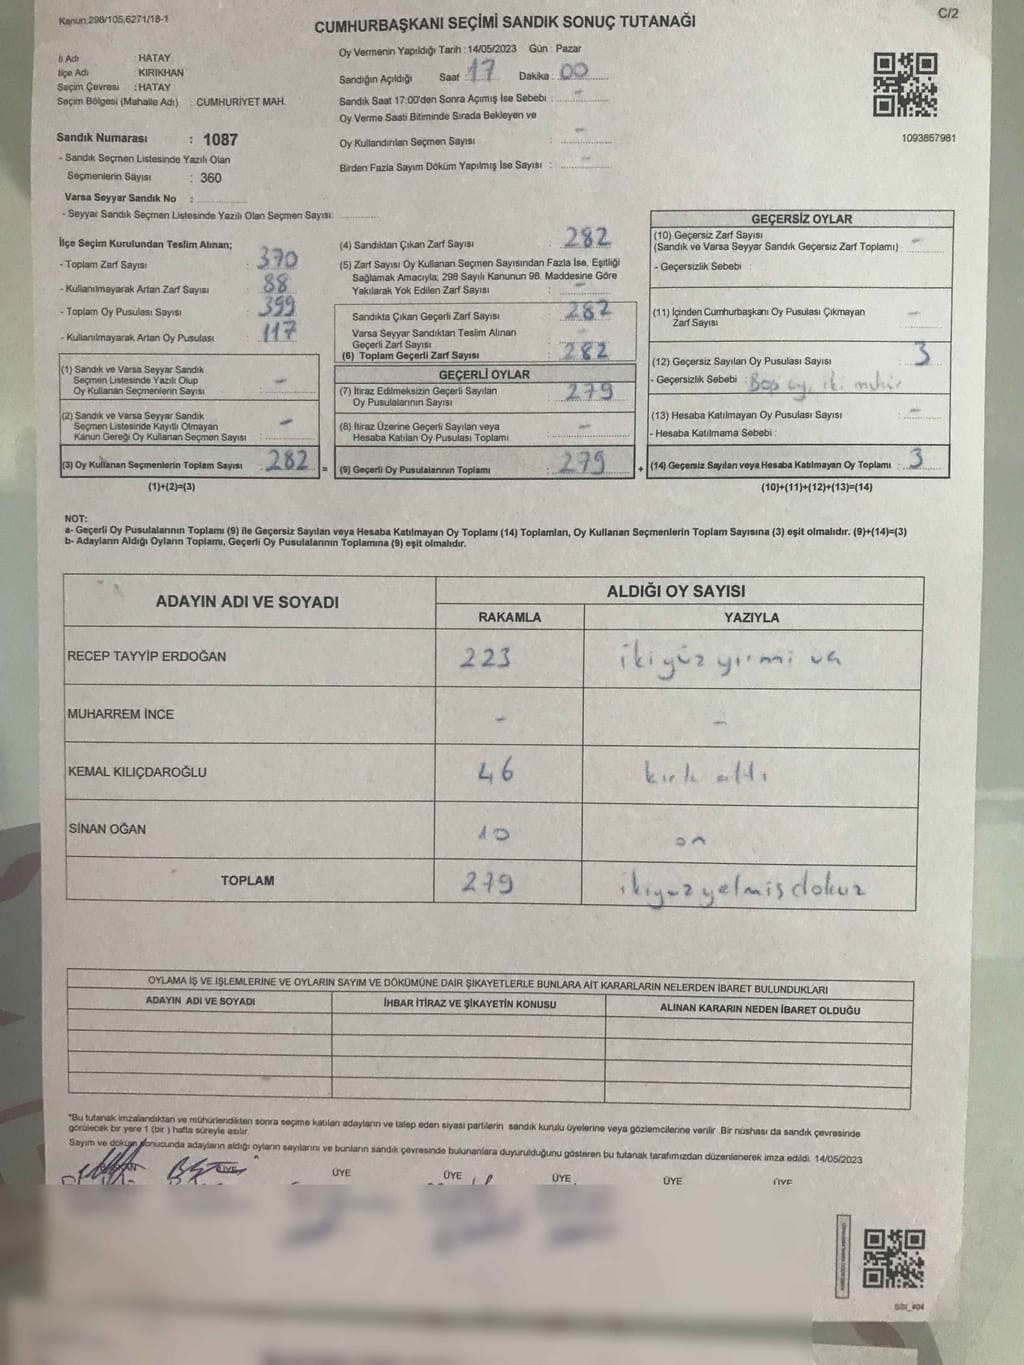 Kanun,298/105,6271/18-1
C/2
CUMHURBAŞKANI SEÇİMİ SANDIK SONUÇ TUTANAĞI
İl Adı : HATAY
İlçe Adı : KIRIKHAN
Seçim Çevresi : HATAY
Seçim Bölgesi (Mahalle Adı) : CUMHURİYET MAH.
Sandık Numarası : 1087
- Sandık Seçmen Listesinde Yazılı Olan
Seçmenlerin Sayısı : 360
Varsa Seyyar Sandık No :
- Seyyar Sandık Seçmen Listesinde Yazılı Olan Seçmen Sayısı:
Oy Vermenin Yapıldığı Tarih : 14/05/2023 Gün : Pazar
Sandığın Açıldığı Saat : 17 Dakika : 00
Sandık Saat 17:00'den Sonra Açımış İse Sebebi : -
Oy Verme Saati Bitiminde Sırada Bekleyen ve
Oy Kullandırılan Seçmen Sayısı : -
Birden Fazla Sayım Döküm Yapılmış İse Sayısı : -
1093857981
İlçe Seçim Kurulundan Teslim Alınan;
- Toplam Zarf Sayısı : 370
- Kullanılmayarak Artan Zarf Sayısı : 88
- Toplam Oy Pusulası Sayısı : 399
- Kullanılmayarak Artan Oy Pusulası : 117
(1) Sandık ve Varsa Seyyar Sandık
Seçmen Listesinde Yazılı Olup
Oy Kullanan Seçmenlerin Sayısı : -
(2) Sandık ve Varsa Seyyar Sandık
Seçmen Listesinde Kayıtlı Olmayan
Kanun Gereği Oy Kullanan Seçmen Sayısı : -
(3) Oy Kullanan Seçmenlerin Toplam Sayısı : 282 =
(1)+(2)=(3)
(4) Sandıktan Çıkan Zarf Sayısı : 282
(5) Zarf Sayısı Oy Kullanan Seçmen Sayısından Fazla İse, Eşitliği
Sağlamak Amacıyla; 298 Sayılı Kanunun 98. Maddesine Göre
Yakılarak Yok Edilen Zarf Sayısı : -
Sandıkta Çıkan Geçerli Zarf Sayısı : 282
Varsa Seyyar Sandıktan Teslim Alınan
Geçerli Zarf Sayısı : -
(6) Toplam Geçerli Zarf Sayısı : 282
GEÇERLİ OYLAR
(7) İtiraz Edilmeksizin Geçerli Sayılan
Oy Pusulalarının Sayısı : 279
(8) İtiraz Üzerine Geçerli Sayılan veya
Hesaba Katılan Oy Pusulası Toplamı : -
(9) Geçerli Oy Pusulalarının Toplamı : 279 +
GEÇERSİZ OYLAR
(10) Geçersiz Zarf Sayısı
(Sandık ve Varsa Seyyar Sandık Geçersiz Zarf Toplamı) : -
- Geçersizlik Sebebi :
(11) İçinden Cumhurbaşkanı Oy Pusulası Çıkmayan
Zarf Sayısı : -
(12) Geçersiz Sayılan Oy Pusulası Sayısı : 3
- Geçersizlik Sebebi : Boş oy, iki mühür
(13) Hesaba Katılmayan Oy Pusulası Sayısı : -
- Hesaba Katılmama Sebebi :
(14) Geçersiz Sayılan veya Hesaba Katılmayan Oy Toplamı : 3
(10)+(11)+(12)+(13)=(14)
NOT:
a- Geçerli Oy Pusulalarının Toplamı (9) ile Geçersiz Sayılan veya Hesaba Katılmayan Oy Toplamı (14) Toplamları, Oy Kullanan Seçmenlerin Toplam Sayısına (3) eşit olmalıdır. (9)+(14)=(3)
b- Adayların Aldığı Oyların Toplamı, Geçerli Oy Pusulalarının Toplamına (9) eşit olmalıdır.
ADAYIN ADI VE SOYADI
ALDIĞI OY SAYISI
RAKAMLA YAZIYLA
RECEP TAYYİP ERDOĞAN 223 ikiyüz yirmi üç
MUHARREM İNCE - -
KEMAL KILIÇDAROĞLU 46 kırk altı
SİNAN OĞAN 10 on
TOPLAM 279 ikiyüz yetmiş dokuz
OYLAMA İŞ VE İŞLEMLERİNE VE OYLARIN SAYIM VE DÖKÜMÜNE DAİR ŞİKAYETLERLE BUNLARA AİT KARARLARIN NELERDEN İBARET BULUNDUKLARI
ADAYIN ADI VE SOYADI İHBAR İTİRAZ VE ŞİKAYETİN KONUSU ALINAN KARARIN NEDEN İBARET OLDUĞU
*Bu tutanak imzalandıktan ve mühürlendikten sonra seçime katılan adayların ve talep eden siyasi partilerin sandık kurulu üyelerine veya gözlemcilerine verilir. Bir nüshası da sandık çevresinde
görülecek bir yere 1 (bir) hafta süreyle asılır.
Sayım ve döküm sonucunda adayların aldığı oyların sayılarını ve bunların sandık çevresinde bulunanlara duyurulduğunu gösteren bu tutanak tarafımızdan düzenlenerek imza edildi. 14/05/2023
BAŞKAN ÜYE ÜYE ÜYE ÜYE ÜYE ÜYE